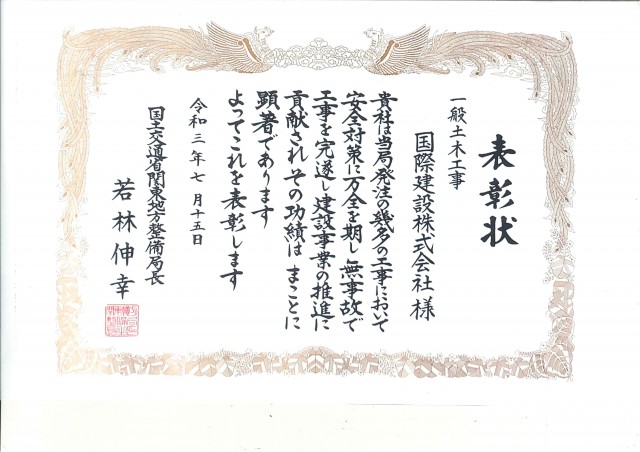 表彰状
一般土木工事
国際建設株式会社様
貴社は当局発注の幾多の工事において
安全対策に万全を期し無事故で
工事を完遂し建設事業の推進に
貢献されその功績はまことに
顕著であります
よってこれを表彰します
令和三年七月十五日
国土交通省関東地方整備局長
若林伸幸